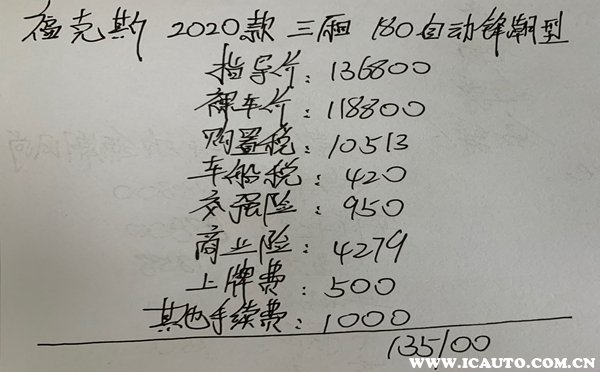 福克斯 2020款 三厢 180自动锋潮型
指导价：136800
裸车价：118800
购置税：10513
车船税：420
交强险：950
商业险：4279
上牌费：500
其他手续费：1000
135100
爱卡汽车
WWW.ICAUTO.COM.CN